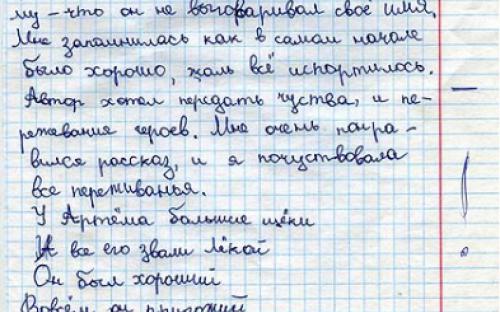 му – что он не выговаривал своё имя.
Мне запомнилась как в самом начале
было хорошо, жаль всё испортилось.
Автор хотел передать чуства, и пе-
реживание героев. Мне очень понра-
вился рассказ, и я почуствовала
все переживанья.
У Артёма большие щёки
И все его звали Лёкой
Он был хороший
Вовсём он пригожий